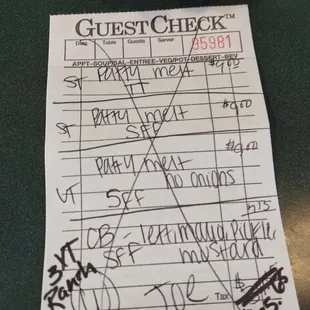 GUESTCHECK™
Date Table Guests Server
95981
APPT-SOUP/SAL-ENTREE-VEG/POT-DESSERT-BEV
ST Patty melt $9.00
TT
ST Patty melt $9.00
SFF
Patty melt $9.00
no onions
VT SFF
7.75
CB - lett, mayo, pickle,
SFF mustard
Ranch
Joe Tax